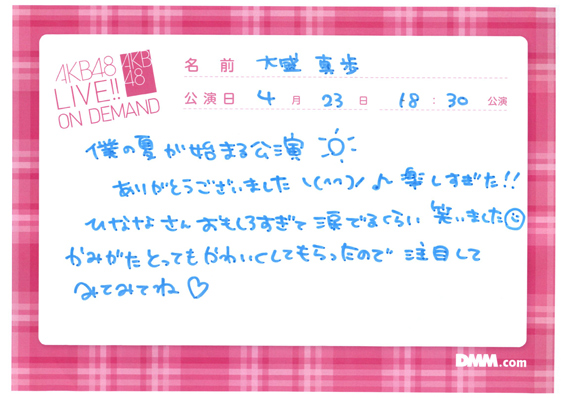 AKB48
LIVE!!
ON DEMAND
AKB
48
名前 大盛 真歩
公演日 4月23日 18:30公演
僕の夏が始まる公演
ありがとうございました \(^^)/♪ 楽しすぎた!!
ひななさんおもしろすぎて涙でるくらい笑いました☺
かみがたとってもかわいくしてもらったので注目して
みてみてね♡
DMM.com